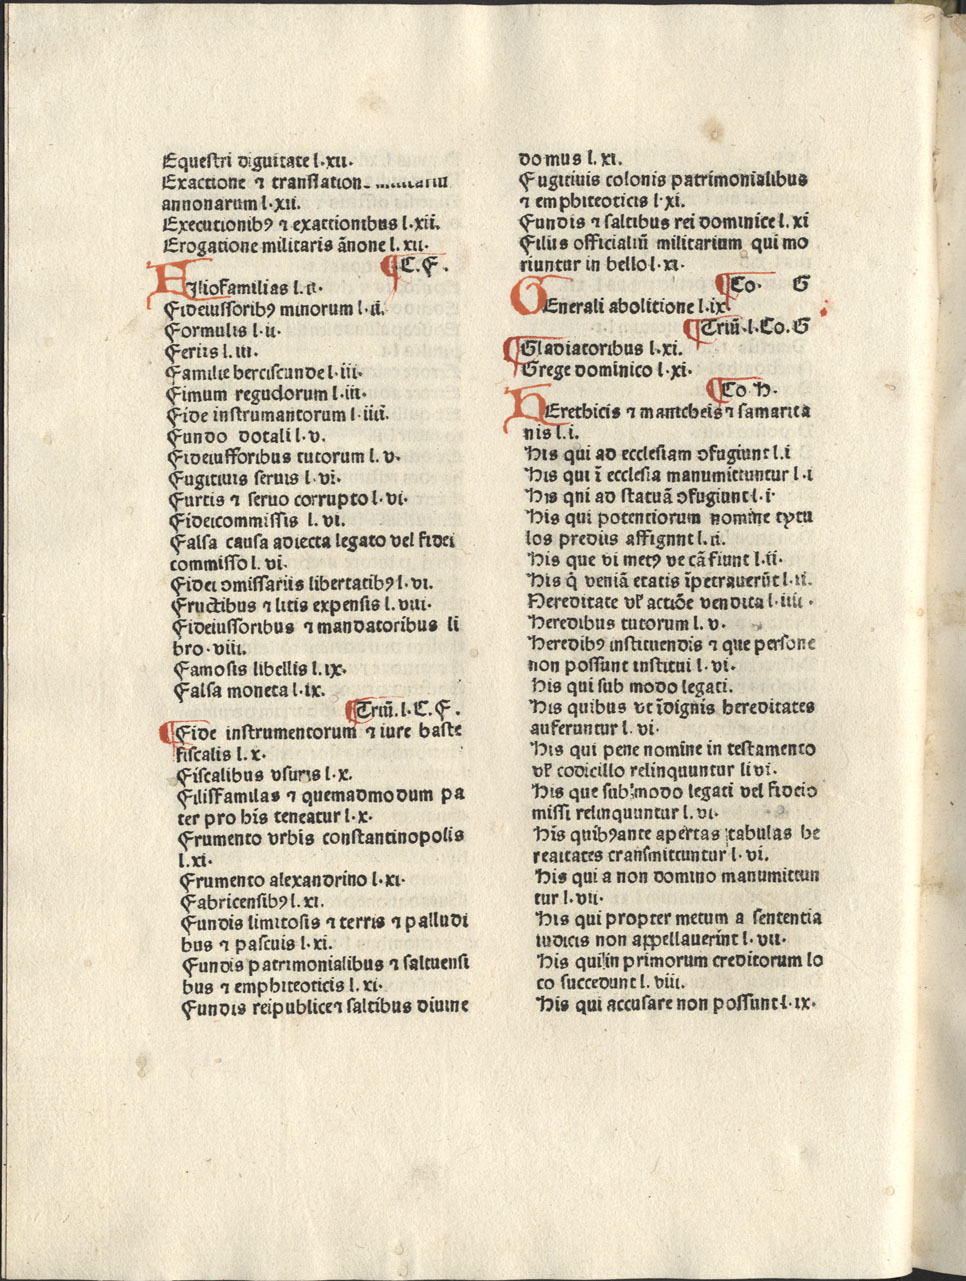 Equestri diguitate l.xii.
Exactione ⁊ translation militariū
annonarum l.xii.
Executionibꝰ ⁊ exactionibus l.xii.
Erogatione militaris ānone l.xii.
C.F.
Filiofamilias l.ii.
Fideiussoribꝰ minorum l.ii.
Formulis l.ii.
Feriis l.iii.
Familie herciscunde l.iii.
Finium regudorum l.iii.
Fide instrumantorum l.iiii.
Fundo dotali l.v.
Fideiufforibus tutorum l.v.
Fugitiuis seruis l.vi.
Furtis ⁊ seruo corrupto l.vi.
Fideicommissis l.vi.
Falsa causa adiecta legato vel fidei
commisso l.vi.
Fidei ꝯmissariis libertatibꝰ l.vi.
Fructibus ⁊ litis expensis l.viii.
Fideiussoribus ⁊ mandatoribus li
bro.viii.
Famosis libellis l.ix.
Falsa moneta l.ix.
Triū.l.C.F.
Fide instrumentorum ⁊ iure haste
fiscalis l.x.
Fiscalibus vsuris l.x.
Filiffamilas ⁊ quemadmodum pa
ter pro his teneatur l.x.
Frumento vrbis constantinopolis
l.xi.
Frumento alexandrino l.xi.
Fabricensibꝰ l.xi.
Fundis limitosis ⁊ terris ⁊ palludi
bus ⁊ pascuis l.xi.
Fundis patrimonialibus ⁊ saltuensi
bus ⁊ emphiteoticis l.xi.
Fundis reipublice ⁊ saltibus diuine
domus l.xi.
Fugitiuis colonis patrimonialibus
⁊ emphiteoticis l.xi.
Fundis ⁊ saltibus rei dominice l.xi
Filius officialiū militarium qui mo
riuntur in bello l.xi.
Co. G
GEnerali abolitione l.ix
Triū.l.Co.G
Gladiatoribus l.xi.
Grege dominico l.xi.
Co H.
HErethicis ⁊ manicheis ⁊ samarita
nis l.i.
His qui ad ecclesiam ꝯfugiunt l.i
His qui ī ecclesia manumittuntur l.i
His qni ad statuā ꝯfugiunt l.i.
His qui potentiorum nomine tytu
los prediis affignnt l.ii.
His que vi metꝰ ve cā fiunt l.ii.
His q̄ veniā etatis īpetrauerūt l.ii.
Hereditate vꝉ actiōe vendita l.iiii.
Heredibus tutorum l.v.
Heredibꝰ instituendis ⁊ que persone
non possunt institui l.vi.
His qui sub modo legati.
His quibus vt īdignis hereditates
auferuntur l.vi.
His qui pene nomine in testamento
vꝉ codicillo relinquuntur li vi.
His que sub modo legati vel fideiꝯ
missi relinquuntur l.vi.
His quibꝰ ante apertas tabulas he
reaitates transmittuntur l.vi.
His qui a non domino manumittun
tur l.vii.
His qui propter metum a sententia
iudicis non appellauerint l.vii.
His qui in primorum creditorum lo
co succedunt l.viii.
His qui accusare non possunt l.ix.